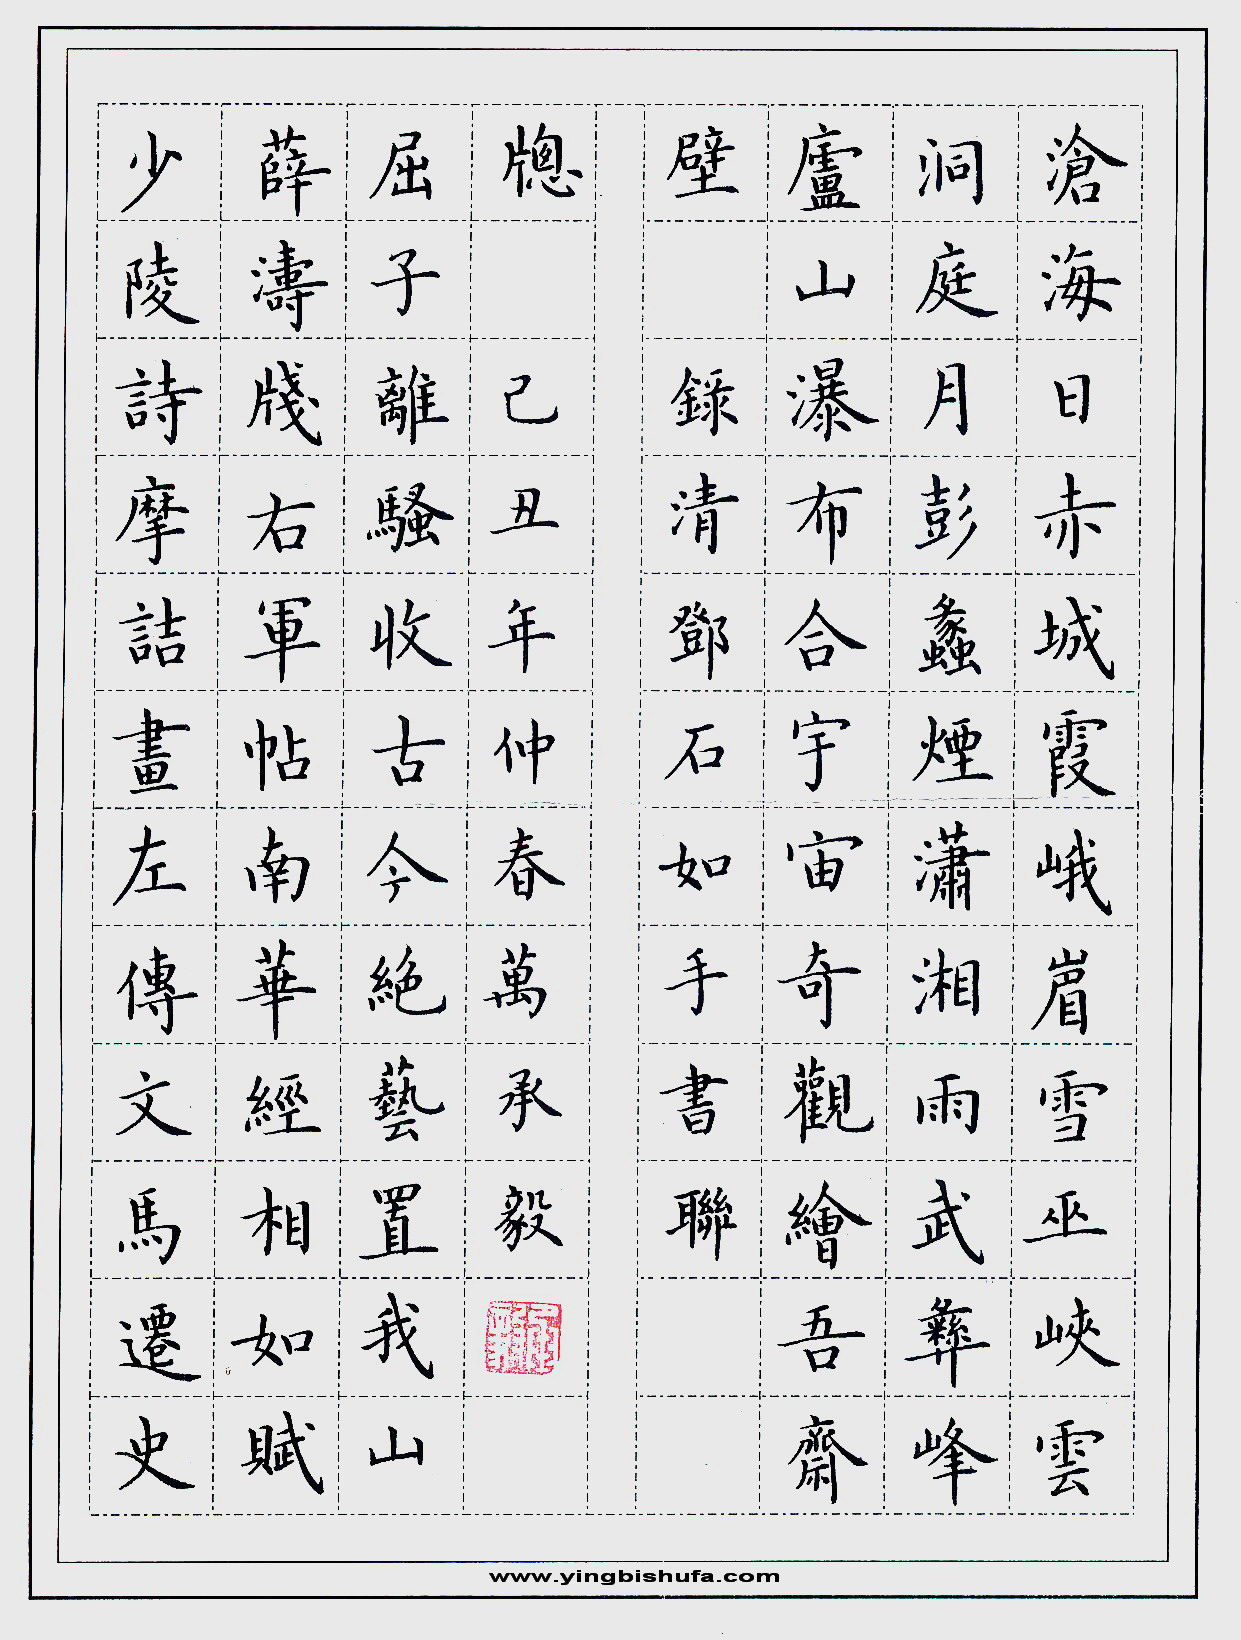 滄海日赤城霞峨嵋雪巫峽雲
洞庭月彭蠡煙瀟湘雨武彝峰
廬山瀑布合宇宙奇觀繪吾齋
壁 錄清鄧石如手書聯
少陵詩摩詰畫左傳文馬遷史
薛濤牋右軍帖南華經相如賦
屈子離騷收古今絕藝置我山
牕 己丑年仲春萬承毅
www.yingbishufa.com